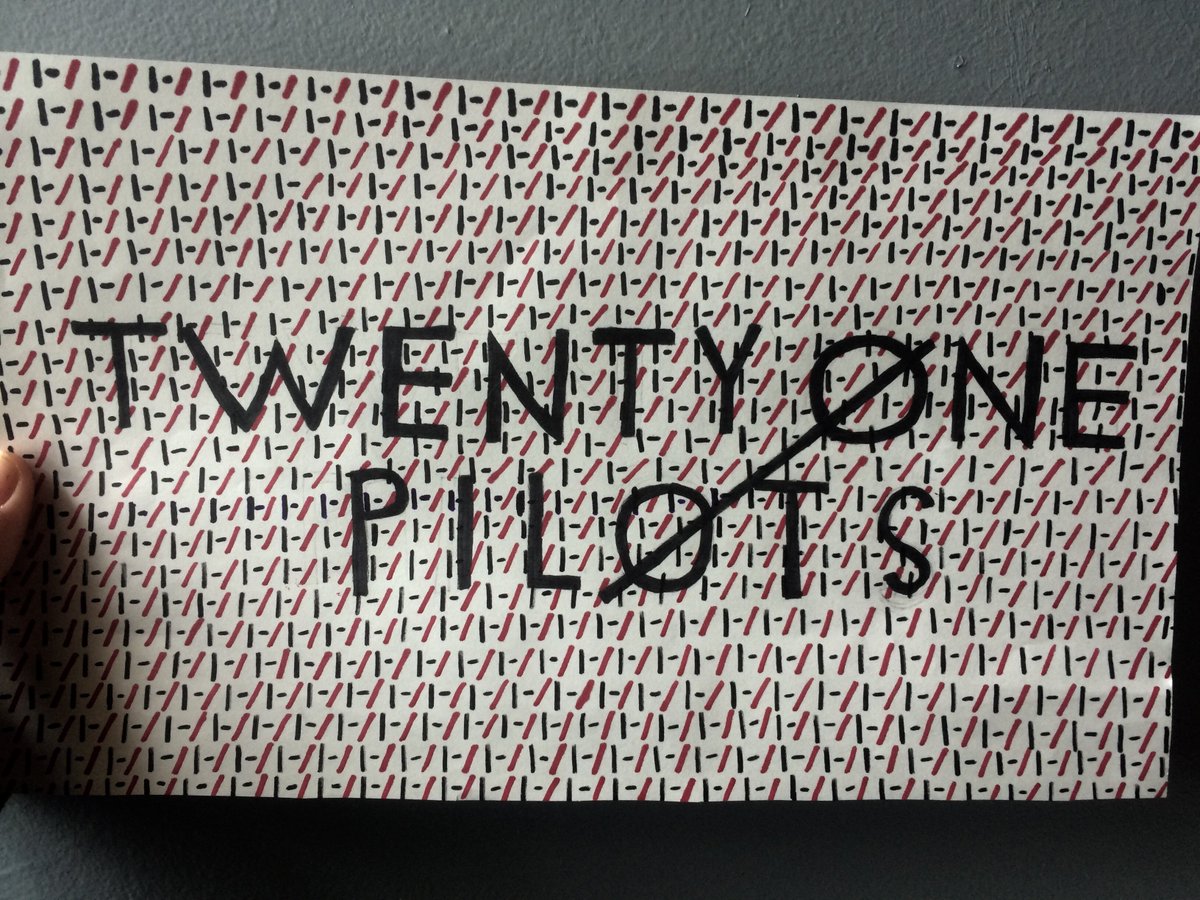 TWENTY ØNE
PILØTS